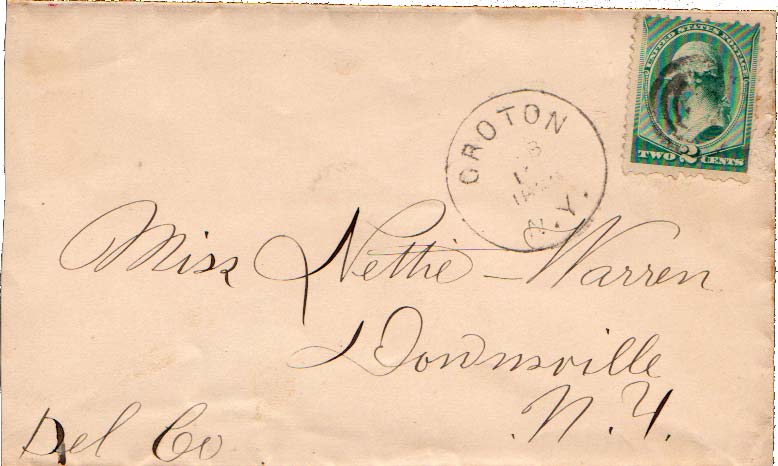 UNITED STATES POSTAGE
TWO 2 CENTS
CROTON
N.Y.
Miss Nettie Warren
Downsville
N.Y.
Del Co